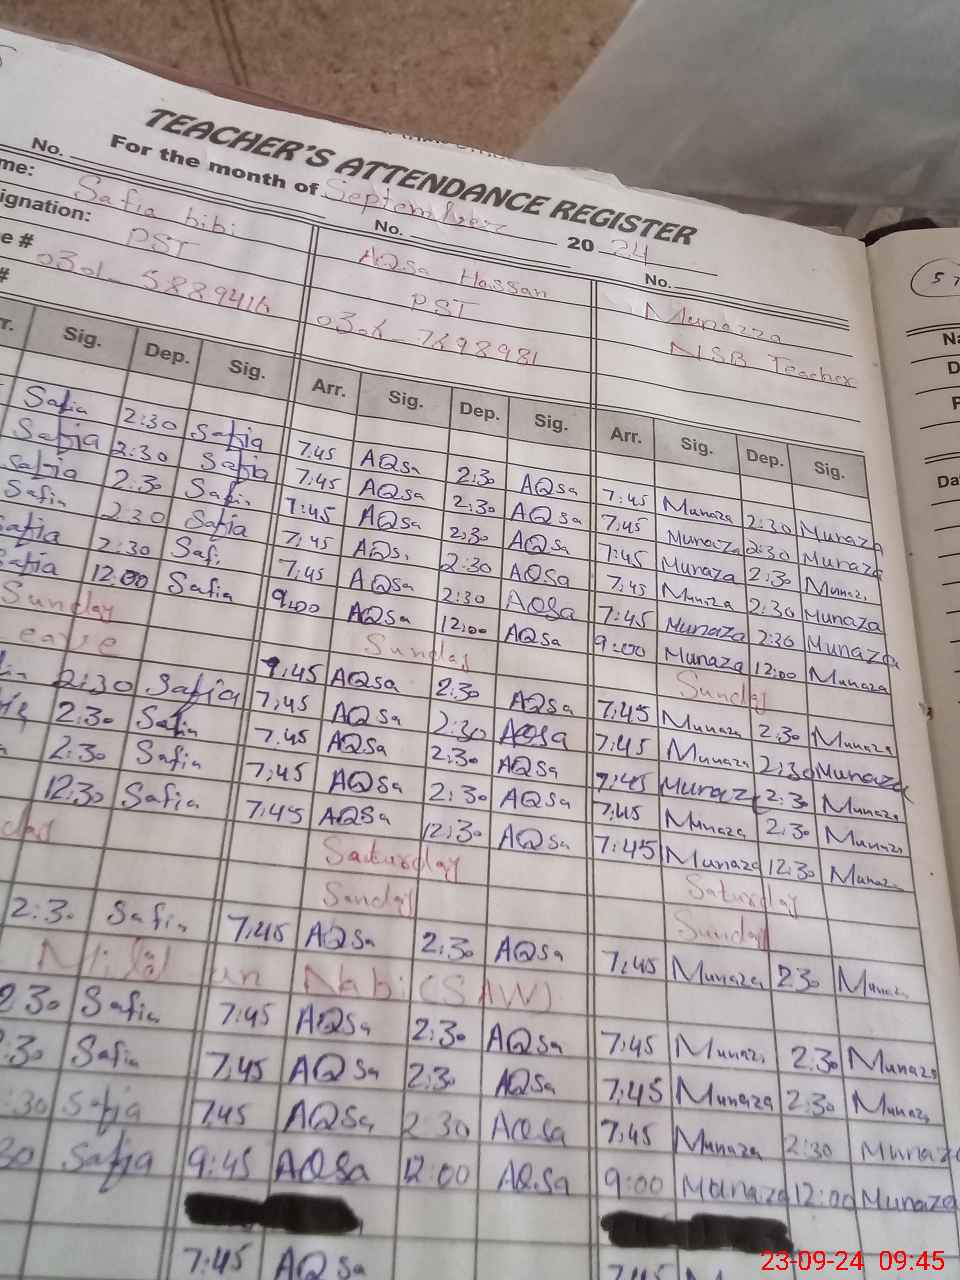 TEACHER'S ATTENDANCE REGISTER
For the month of September 2024
No. No. No.
me: Safia bibi AQSa Hassan Munazza
ignation: PST PST NSB Teacher
e # 0306 7698981
#
r. Sig. Dep. Sig. Arr. Sig. Dep. Sig. Arr. Sig. Dep. Sig.
Safia 2:30 Safia 7:45 AQSa 2:30 AQSa 7:45 Munaza 2:30 Munaza
Safia 2:30 Safia 7:45 AQSa 2:30 AQSa 7:45 Munaza 2:30 Munaza
Safia 2:30 Safia 7:45 AQSa 2:30 AQSa 7:45 Munaza 2:30 Munaza
Safia 2:30 Safia 7:45 AQSa 2:30 AQSa 7:45 Munaza 2:30 Munaza
Safia 2:30 Safi 7:45 AQSa 2:30 AQSa 7:45 Munaza 2:30 Munaza
Safia 12:00 Safia 9:00 AQSa 12:00 AQSa 9:00 Munaza 12:00 Munaza
Sunday Sunday Sunday
eave 7:45 AQSa 2:30 AQSa 7:45 Munaza 2:30 Munaza
2:30 Safia 7:45 AQSa 2:30 AQSa 7:45 Munaza 2:30 Munaza
2:30 Safia 7:45 AQSa 2:30 AQSa 7:45 Munaza 2:30 Munaza
2:30 Safia 7:45 AQSa 2:30 AQSa 7:45 Munaza 2:30 Munaza
12:30 Safia 7:45 AQSa 12:30 AQSa 7:45 Munaza 12:30 Munaza
day Saturday Saturday
Sunday Sunday
2:30 Safia 7:45 AQSa 2:30 AQSa 7:45 Munaza 2:30 Munaza
un Nabi (SAW)
2:30 Safia 7:45 AQSa 2:30 AQSa 7:45 Munaza 2:30 Munaza
:30 Safia 7:45 AQSa 2:30 AQSa 7:45 Munaza 2:30 Munaza
:30 Safia 7:45 AQSa 2:30 AQSa 7:45 Munaza 2:30 Munaza
30 Safia 9:45 AQSa 12:00 AQSa 9:00 Munaza 12:00 Munaza
7:45 AQSa 7:45 M
Na
D
P
Da
23-09-24 09:45